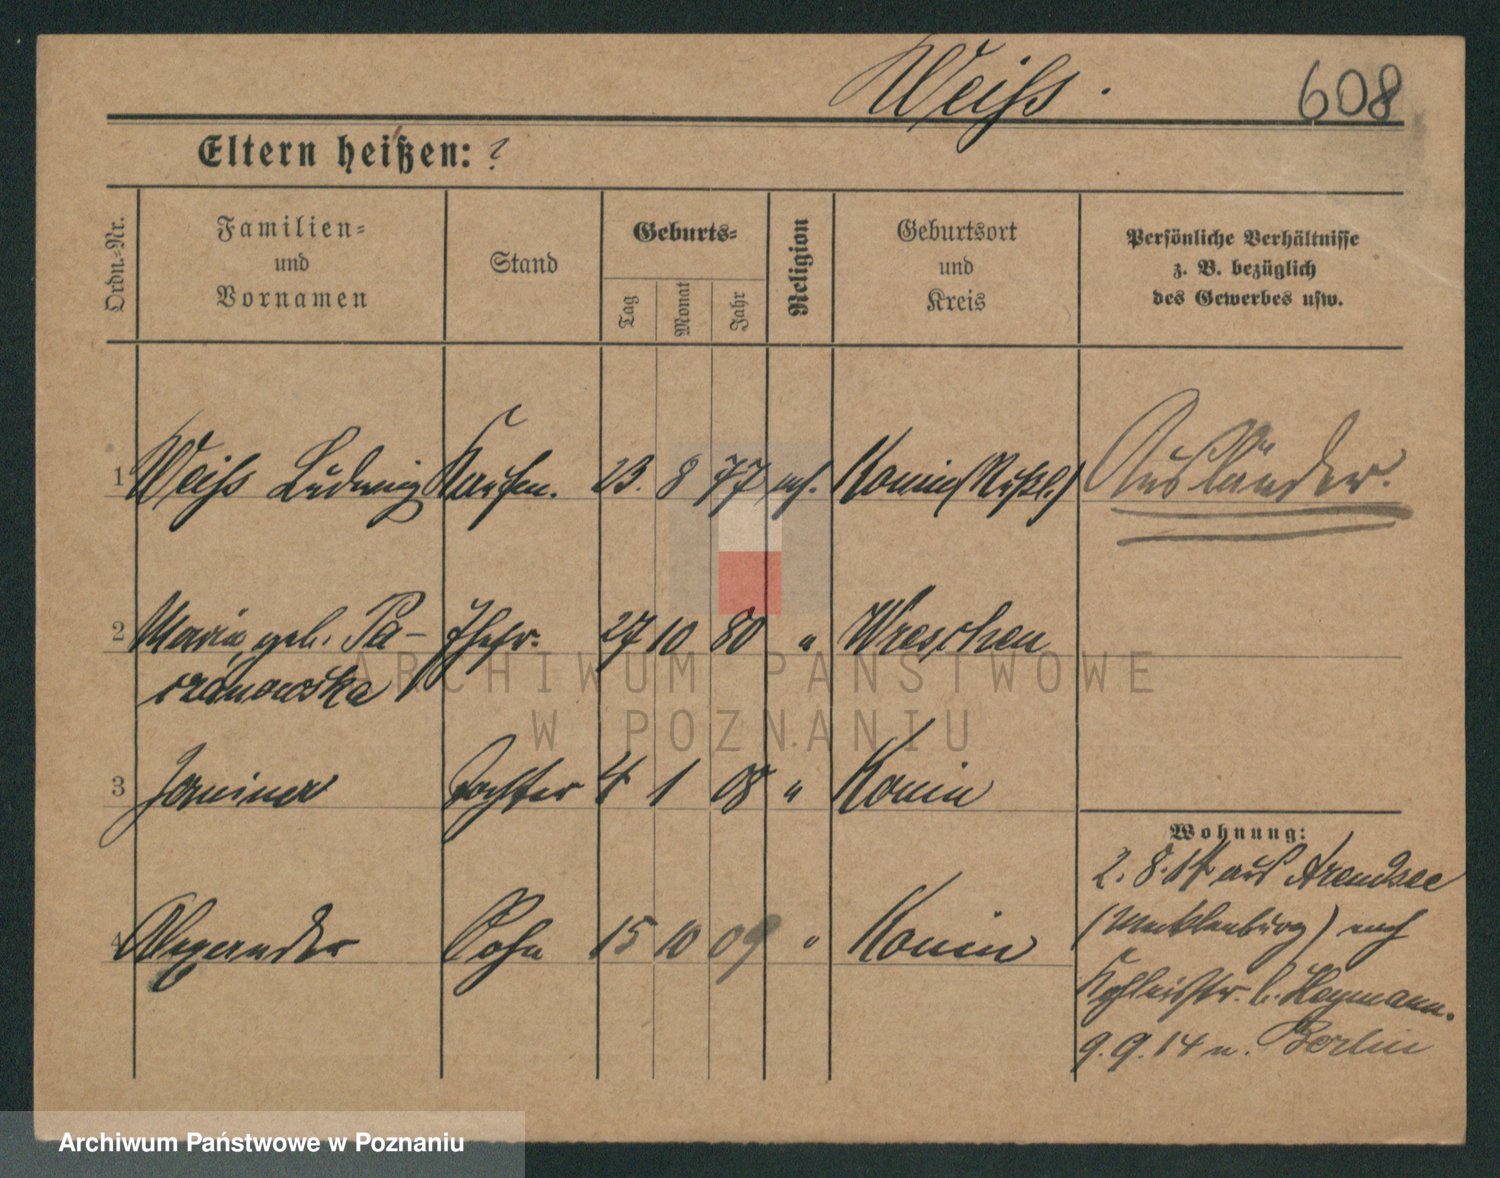 Weiß.
608
Eltern heißen: ?
Ordn.-Nr.
Familien-
und
Vornamen
Stand
Geburts-
Tag
Monat
Jahr
Religion
Geburtsort
und
Kreis
Persönliche Verhältnisse
z. B. bezüglich
des Gewerbes usw.
1 Weiß Ludwig Kaufm. 23. 8 77 Konin (Rußl.) Ausländer.
2 Maria, geb. Pa- Ehefr. 27 10 80 " Wreschen
3 Janina Tochter 4 1 08 " Konin
Wohnung:
2. 8. 14 aus Arendsee
4 Alexander Sohn 15 10 09 " Konin
(Mecklenburg) nach
b. Heymann.
9. 9. 14 n. Berlin
ARCHIWUM PAŃSTWOWE
W POZNANIU
Archiwum Państwowe w Poznaniu